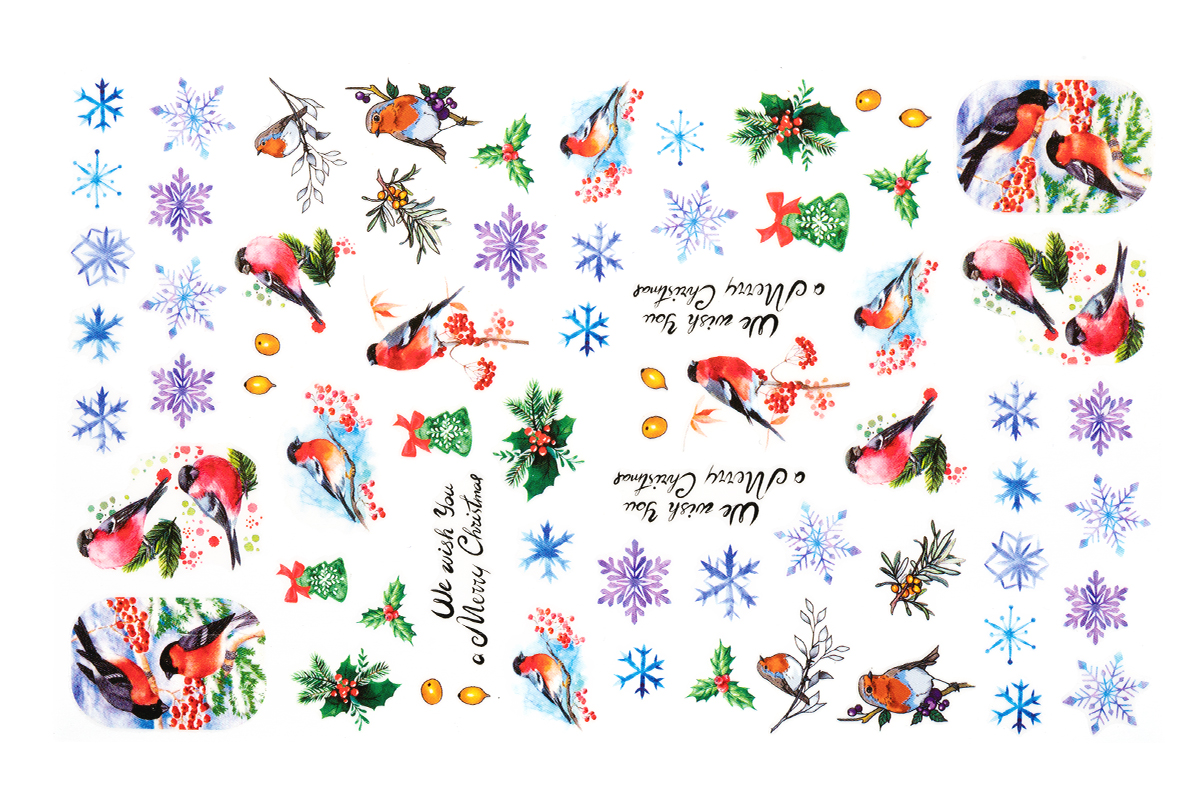 We wish You
a Merry Christmas
We wish You
a Merry Christmas
We wish You
a Merry Christmas